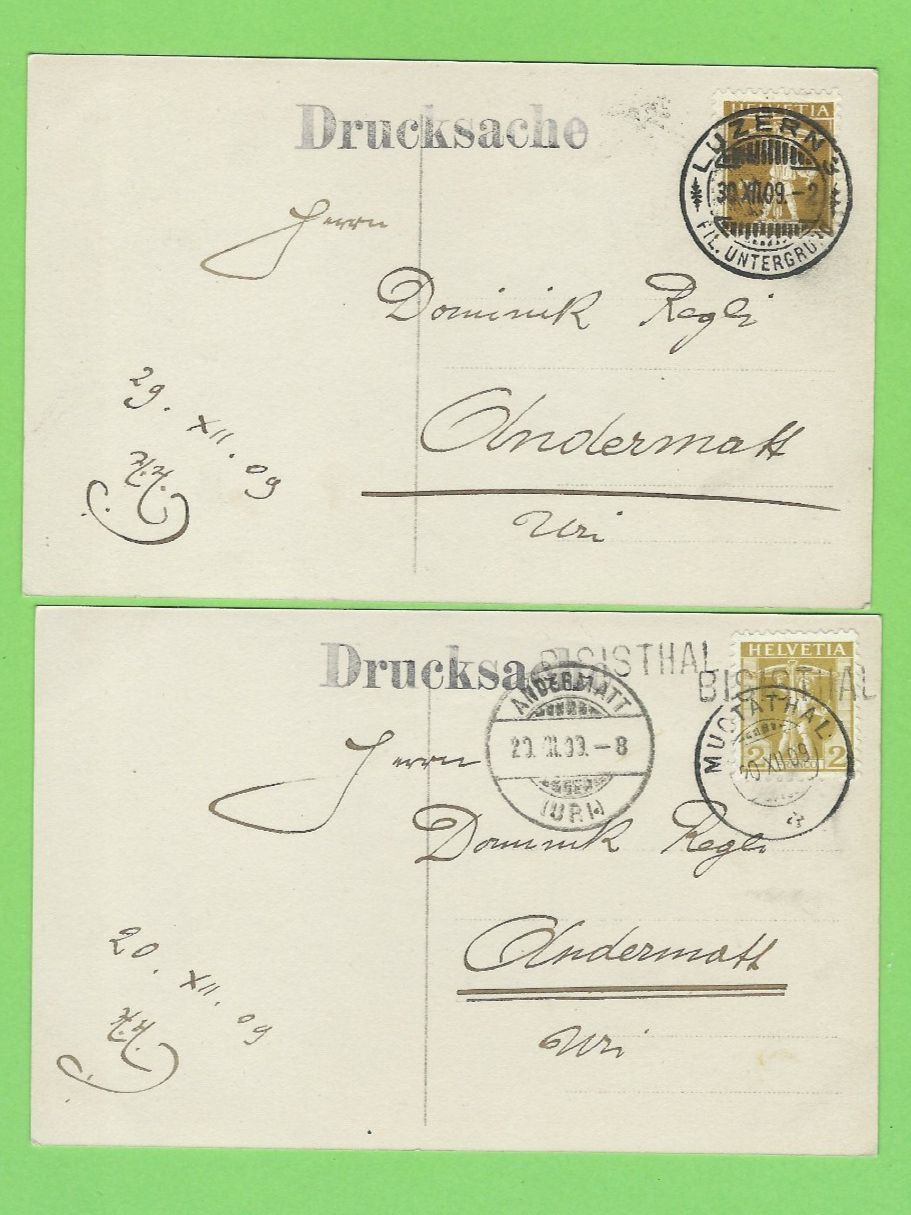 Drucksache
HELVETIA
LUZERN 3
30.XII.09.-2
FIL. UNTERGRUND
Herrn
Dominik Regli
Andermatt
Uri
29. XII. 09
Drucksache
BISISTHAL
BISISTHAL
HELVETIA
2 2
FRANCO
ANDERMATT
(URI)
MUOTATHAL
XII.09
Herrn
Dominik Regli
Andermatt
Uri
20. XII. 09